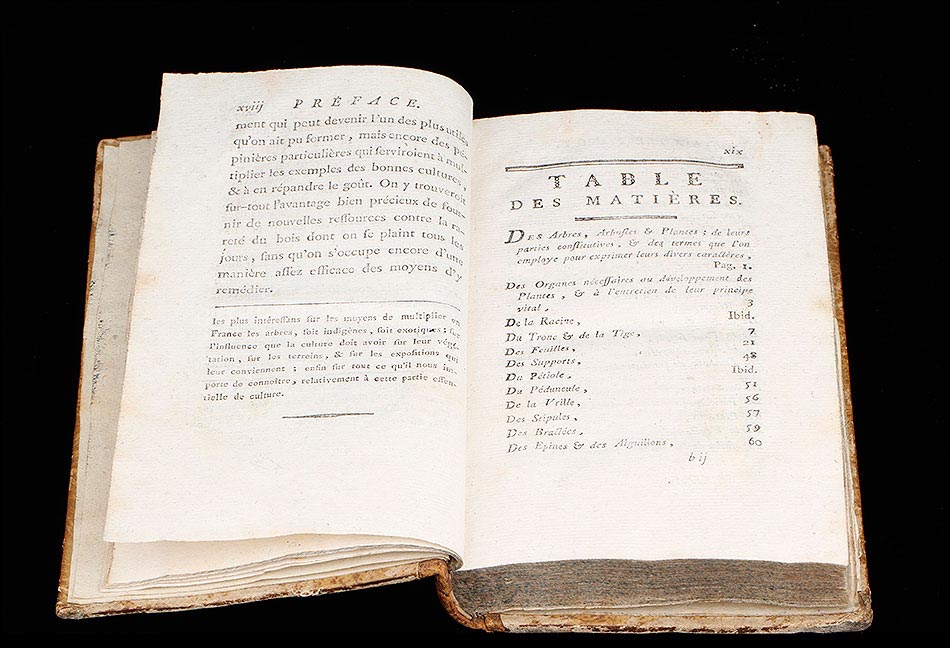 xviij PRÉFACE.
ment qui peut devenir l'un des plus utiles
qu'on ait pu former, mais encore des pé-
pinières particulières qui serviroient à mul-
tiplier les exemples des bonnes cultures,
& à en répandre le goût. On y trouveroit
sur-tout l'avantage bien précieux de four-
nir de nouvelles ressources contre la ra-
reté du bois dont on se plaint tous les
jours, sans qu'on s'occupe encore d'une
manière assez efficace des moyens d'y
remédier.
les plus intéressans sur les moyens de multiplier en
France les arbres, soit indigènes, soit exotiques; sur
l'influence que la culture doit avoir sur leur végé-
tation, sur les terreins, & sur les expositions qui
leur conviennent; enfin sur tout ce qu'il nous im-
porte de connoître, relativement à cette partie essen-
tielle de culture.
xix
TABLE
DES MATIÈRES.
DES Arbres, Arbustes & Plantes; de leurs
parties constitutives, & des termes que l'on
employe pour exprimer leurs divers caractères,
Pag. 1.
Des Organes nécessaires au développement des
Plantes, & à l'entretien de leur principe
vital, 3
De la Racine, Ibid.
Du Tronc & de la Tige, 7
Des Feuilles, 21
Des Supports, 48
Du Pétiole, Ibid.
Du Péduncule, 51
De la Vrille, 56
Des Stipules, 57
Des Bractées, 59
Des Epines & des Aiguillons, 60
b ij